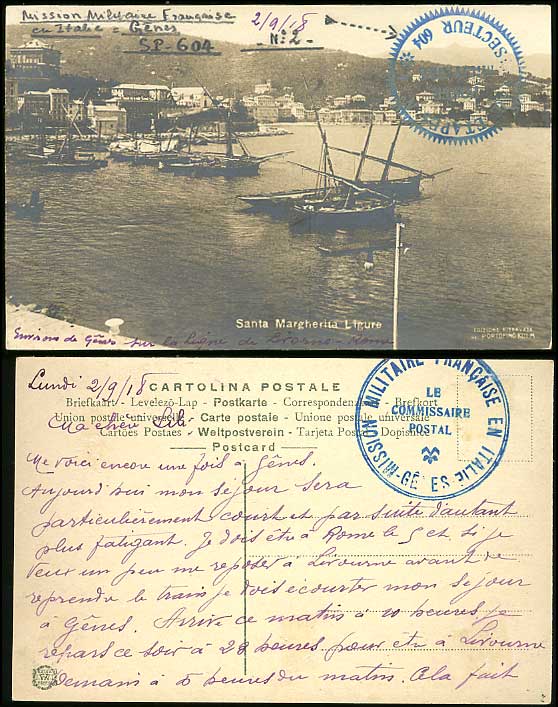 Mission Militaire Française
en Italie - Gênes
SP - 604
2/9/18
N: 2 -
SECTEUR 604
Santa Margherita Ligure
EDIZIONE RISERVATA
Environs de Gênes sur la ligne de Livorno-Rome
Lundi 2/9/18
CARTOLINA POSTALE
Briefkaart - Levelezö-Lap - Postkarte - Correspondenz - Brefkort
Union postale universelle - Carte postale - Unione postale universale
Cartões Postaes - Weltpostverein - Tarjeta Postal - Dopisnice
Postcard
MISSION MILITAIRE FRANÇAISE EN ITALIE - GÊNES
LE
COMMISSAIRE
POSTAL
Ma chère Lili
Me voici encore une fois à Gênes.
Aujourd'hui mon séjour sera
particulièrement court et par suite d'autant
plus fatigant. Je dois être à Rome le 5 et si je
veux un peu me reposer à Livourne avant de
reprendre le train je dois écourter mon séjour
à Gênes. Arrivé ce matin à 10 heures je
repars ce soir à 22 heures pour être à Livourne
demain à 5 heures du matin. Cela fait